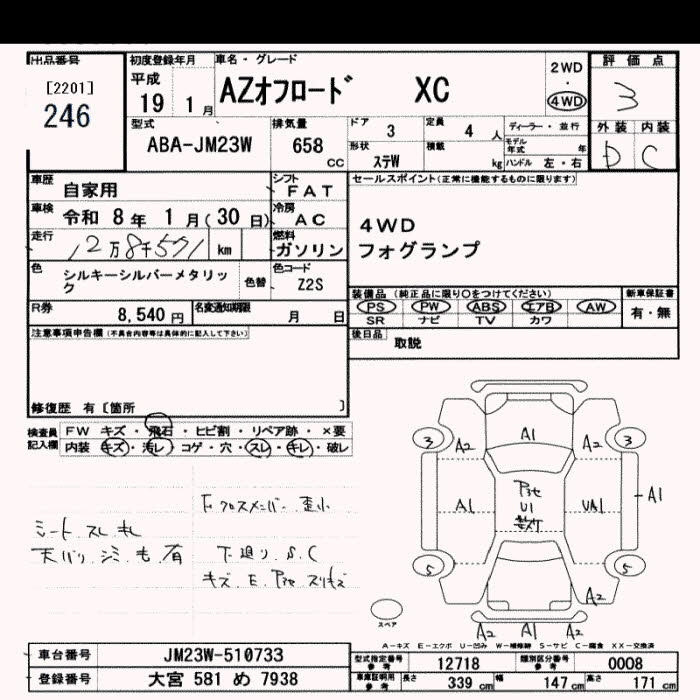 出品番号 初度登録年月 車名・グレード 2WD ・ 4WD 評価点
[2201] 平成 AZオフロード XC 3
246 19 1月
型式 排気量 ドア 3 定員 4人 ディーラー・並行 外装 内装
ABA-JM23W 658 CC 形状 ステW 積載 kg モデル年式 年 D C
ハンドル 左・右
車歴 自家用 シフト FAT セールスポイント(正常に機能するものに限ります)
車検 令和 8年 1月(30日) 冷房 AC 4WD
走行 12万8千571 km 燃料 ガソリン フォグランプ
色 シルキーシルバーメタリック 色替 色コード Z2S
装備品 (純正品に限り〇をつけてください) 新車保証書
PS PW ABS エアB AW 有・無
SR ナビ TV カワ
R券 8,540円 名変通知期限 月 日
後日品 取説
注意事項申告欄(不具合内容等は具体的に記入して下さい)
修復歴 有 [箇所 ]
検査員記入欄 FW キズ・飛石・ヒビ割・リペア跡・×要
内装 キズ・汚レ・コゲ・穴・スレ・キレ・破レ
F.クロスメンバー 歪小
シート スレ キレ
天バリ シミ も 有 下廻り S.C
キズ E
3 A2 A1 A2 3
A1 U1 UA1 A1
5 5
A2
スペア
A2 A1 A2
A-キズ E-エクボ U-凹み W-補修跡 S-サビ C-腐食 XX-交換済
車台番号 JM23W-510733 型式指定番号 参考 12718 類別区分番号 参考 0008
登録番号 大宮 581 め 7938 車庫証明用 参考 長さ 339 cm 幅 147 cm 高さ 171 cm